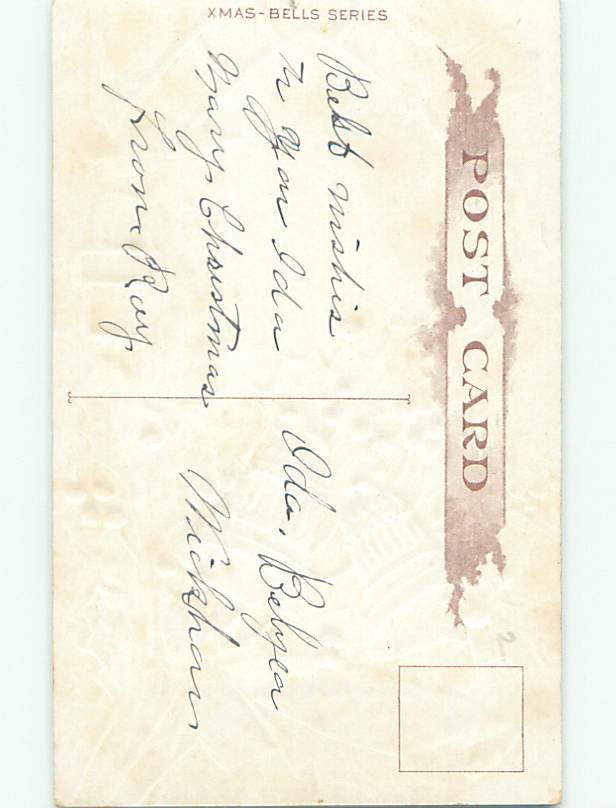 XMAS-BELLS SERIES
POST CARD
Best wishis
to you Ida
Mary Christmas
from Roy
Ida, Belyea
Wickham
2